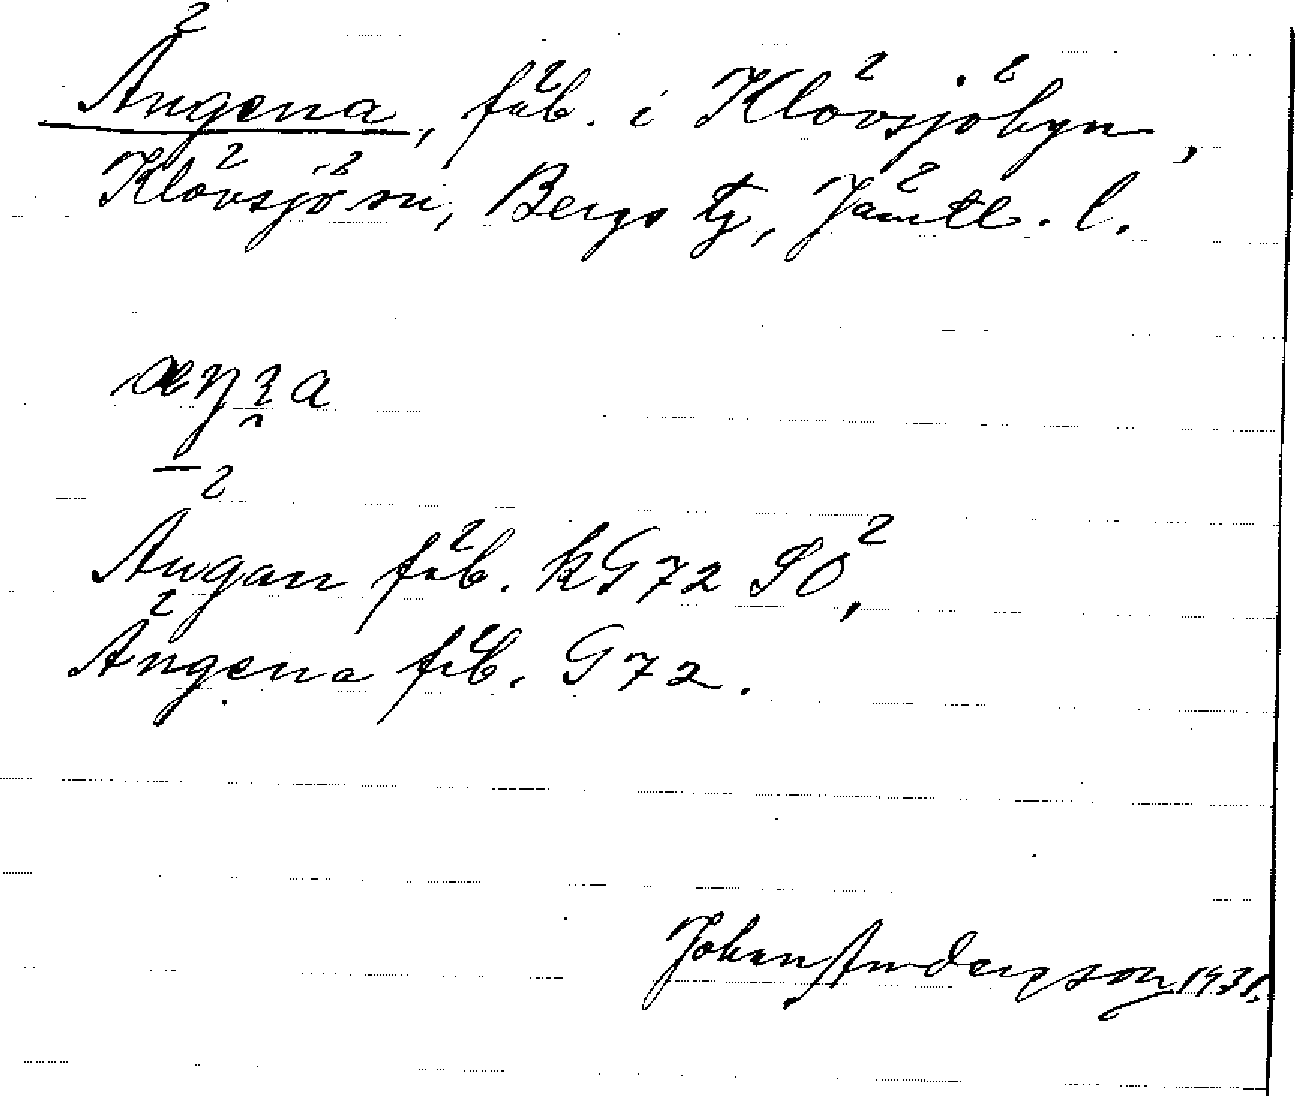 Ängena, fäb. i Klövsjöbyn,
Klövsjö sn, Bergs tg, Jämtl. l.
Ängan fäb. kG72 SÖ,
Ängena fäb. G72.
Johan Anderson 1931.